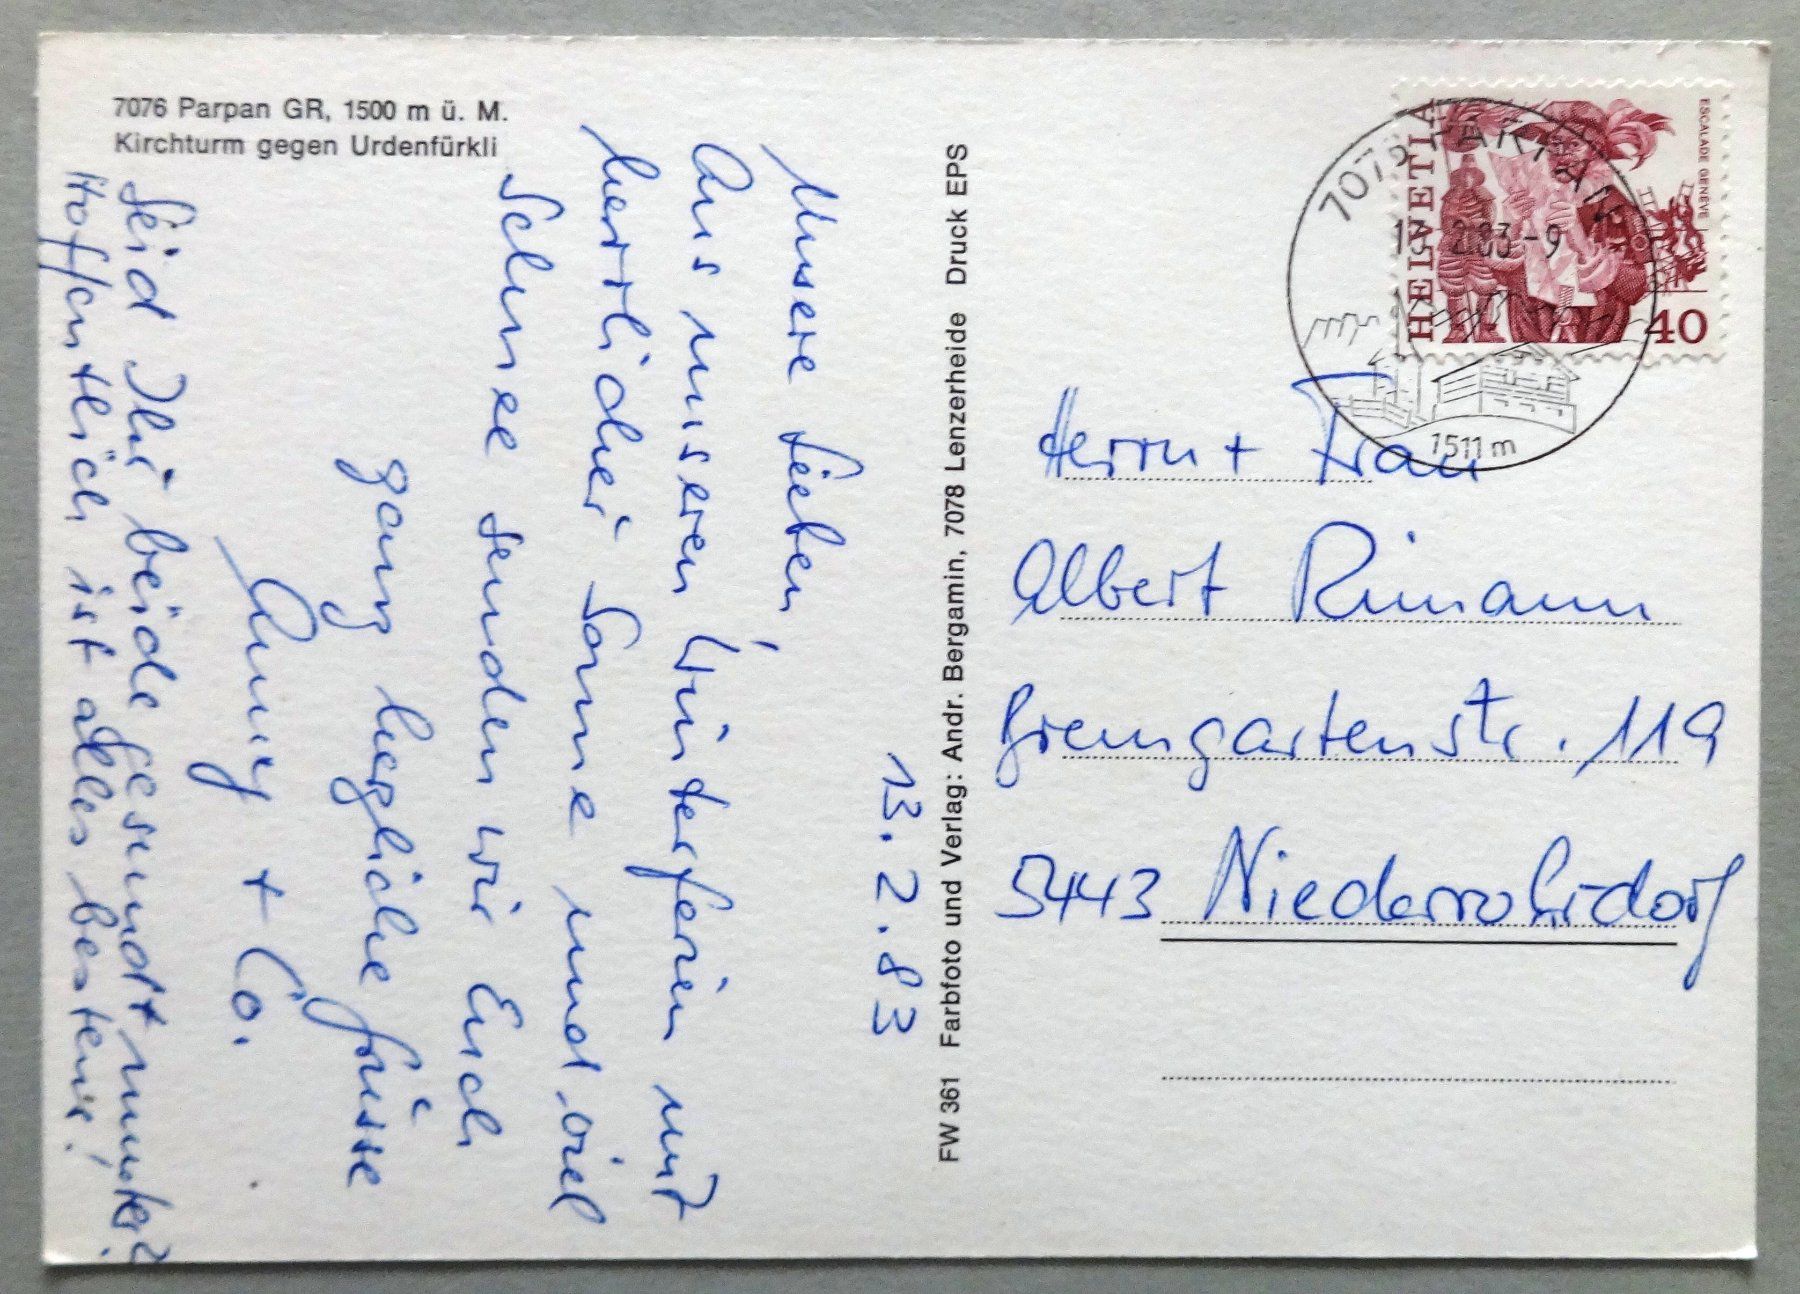 7076 Parpan GR, 1500 m ü. M.
Kirchturm gegen Urdenfürkli
13.2.83
Unsere Lieben,
Aus unseren Winterferien mit
herrlicher Sonne und viel
Schnee senden wir Euch
ganz herzliche Grüsse
+ Co.
Seid Ihr beide gesund + munter?
Hoffentlich ist alles bestens!
FW 361 Farbfoto und Verlag: Andr. Bergamin, 7078 Lenzerheide Druck EPS
HELVETIA
ESCALADE GENÈVE
40
7076 PARPAN
2.83-9
1511 m
Herrn + Frau
Albert Rimann
Bremgartenstr. 119
5443 Niederrohrdorf